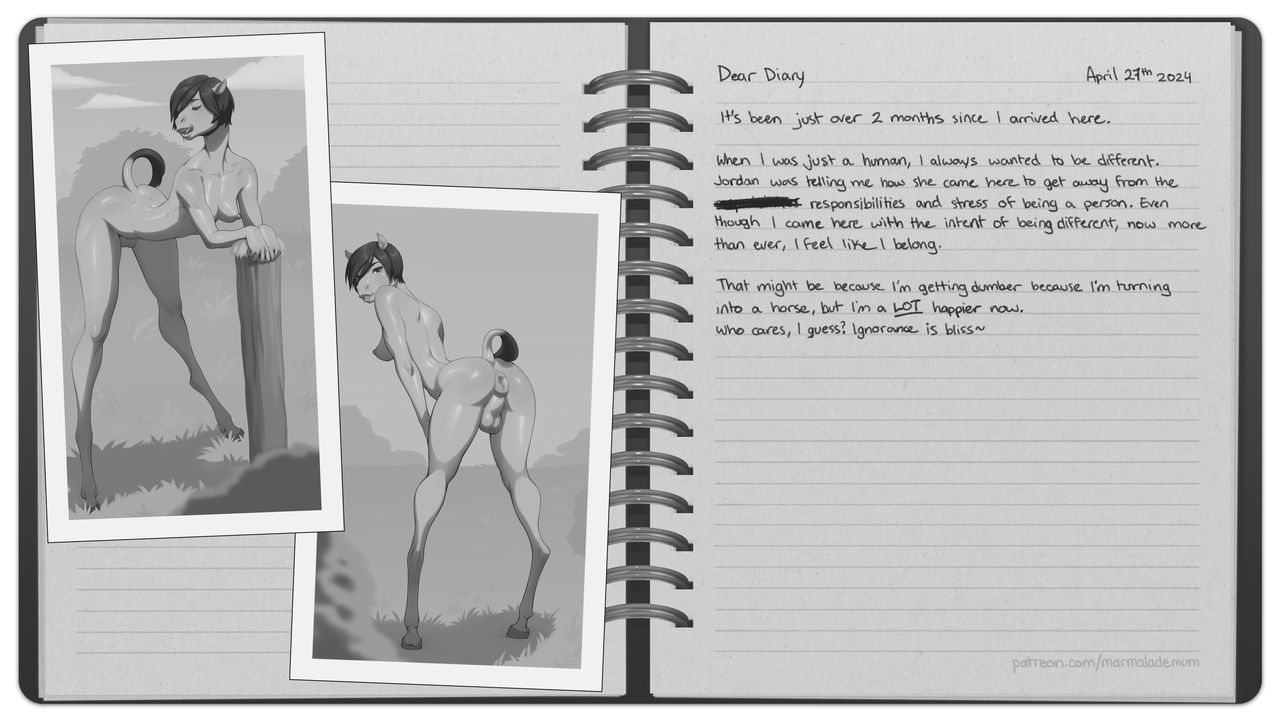 Dear Diary
April 27th 2024
It's been just over 2 months since I arrived here.
When I was just a human, I always wanted to be different.
Jordan was telling me how she came here to get away from the
responsibilities and stress of being a person. Even
though I came here with the intent of being different, now more
than ever, I feel like I belong.
That might be because I'm getting dumber because I'm turning
into a horse, but I'm a LOT happier now.
Who cares, I guess? Ignorance is bliss~
patreon.com/marmalademum